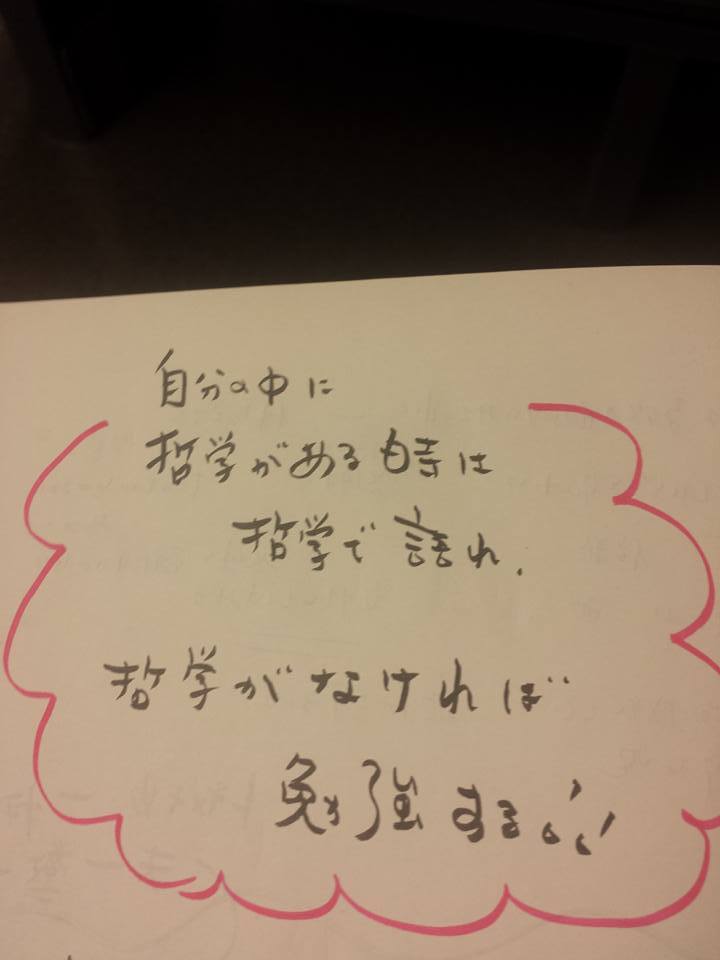 自分の中に
哲学がある時は
哲学で語れ.
哲学がなければ
勉強する!!